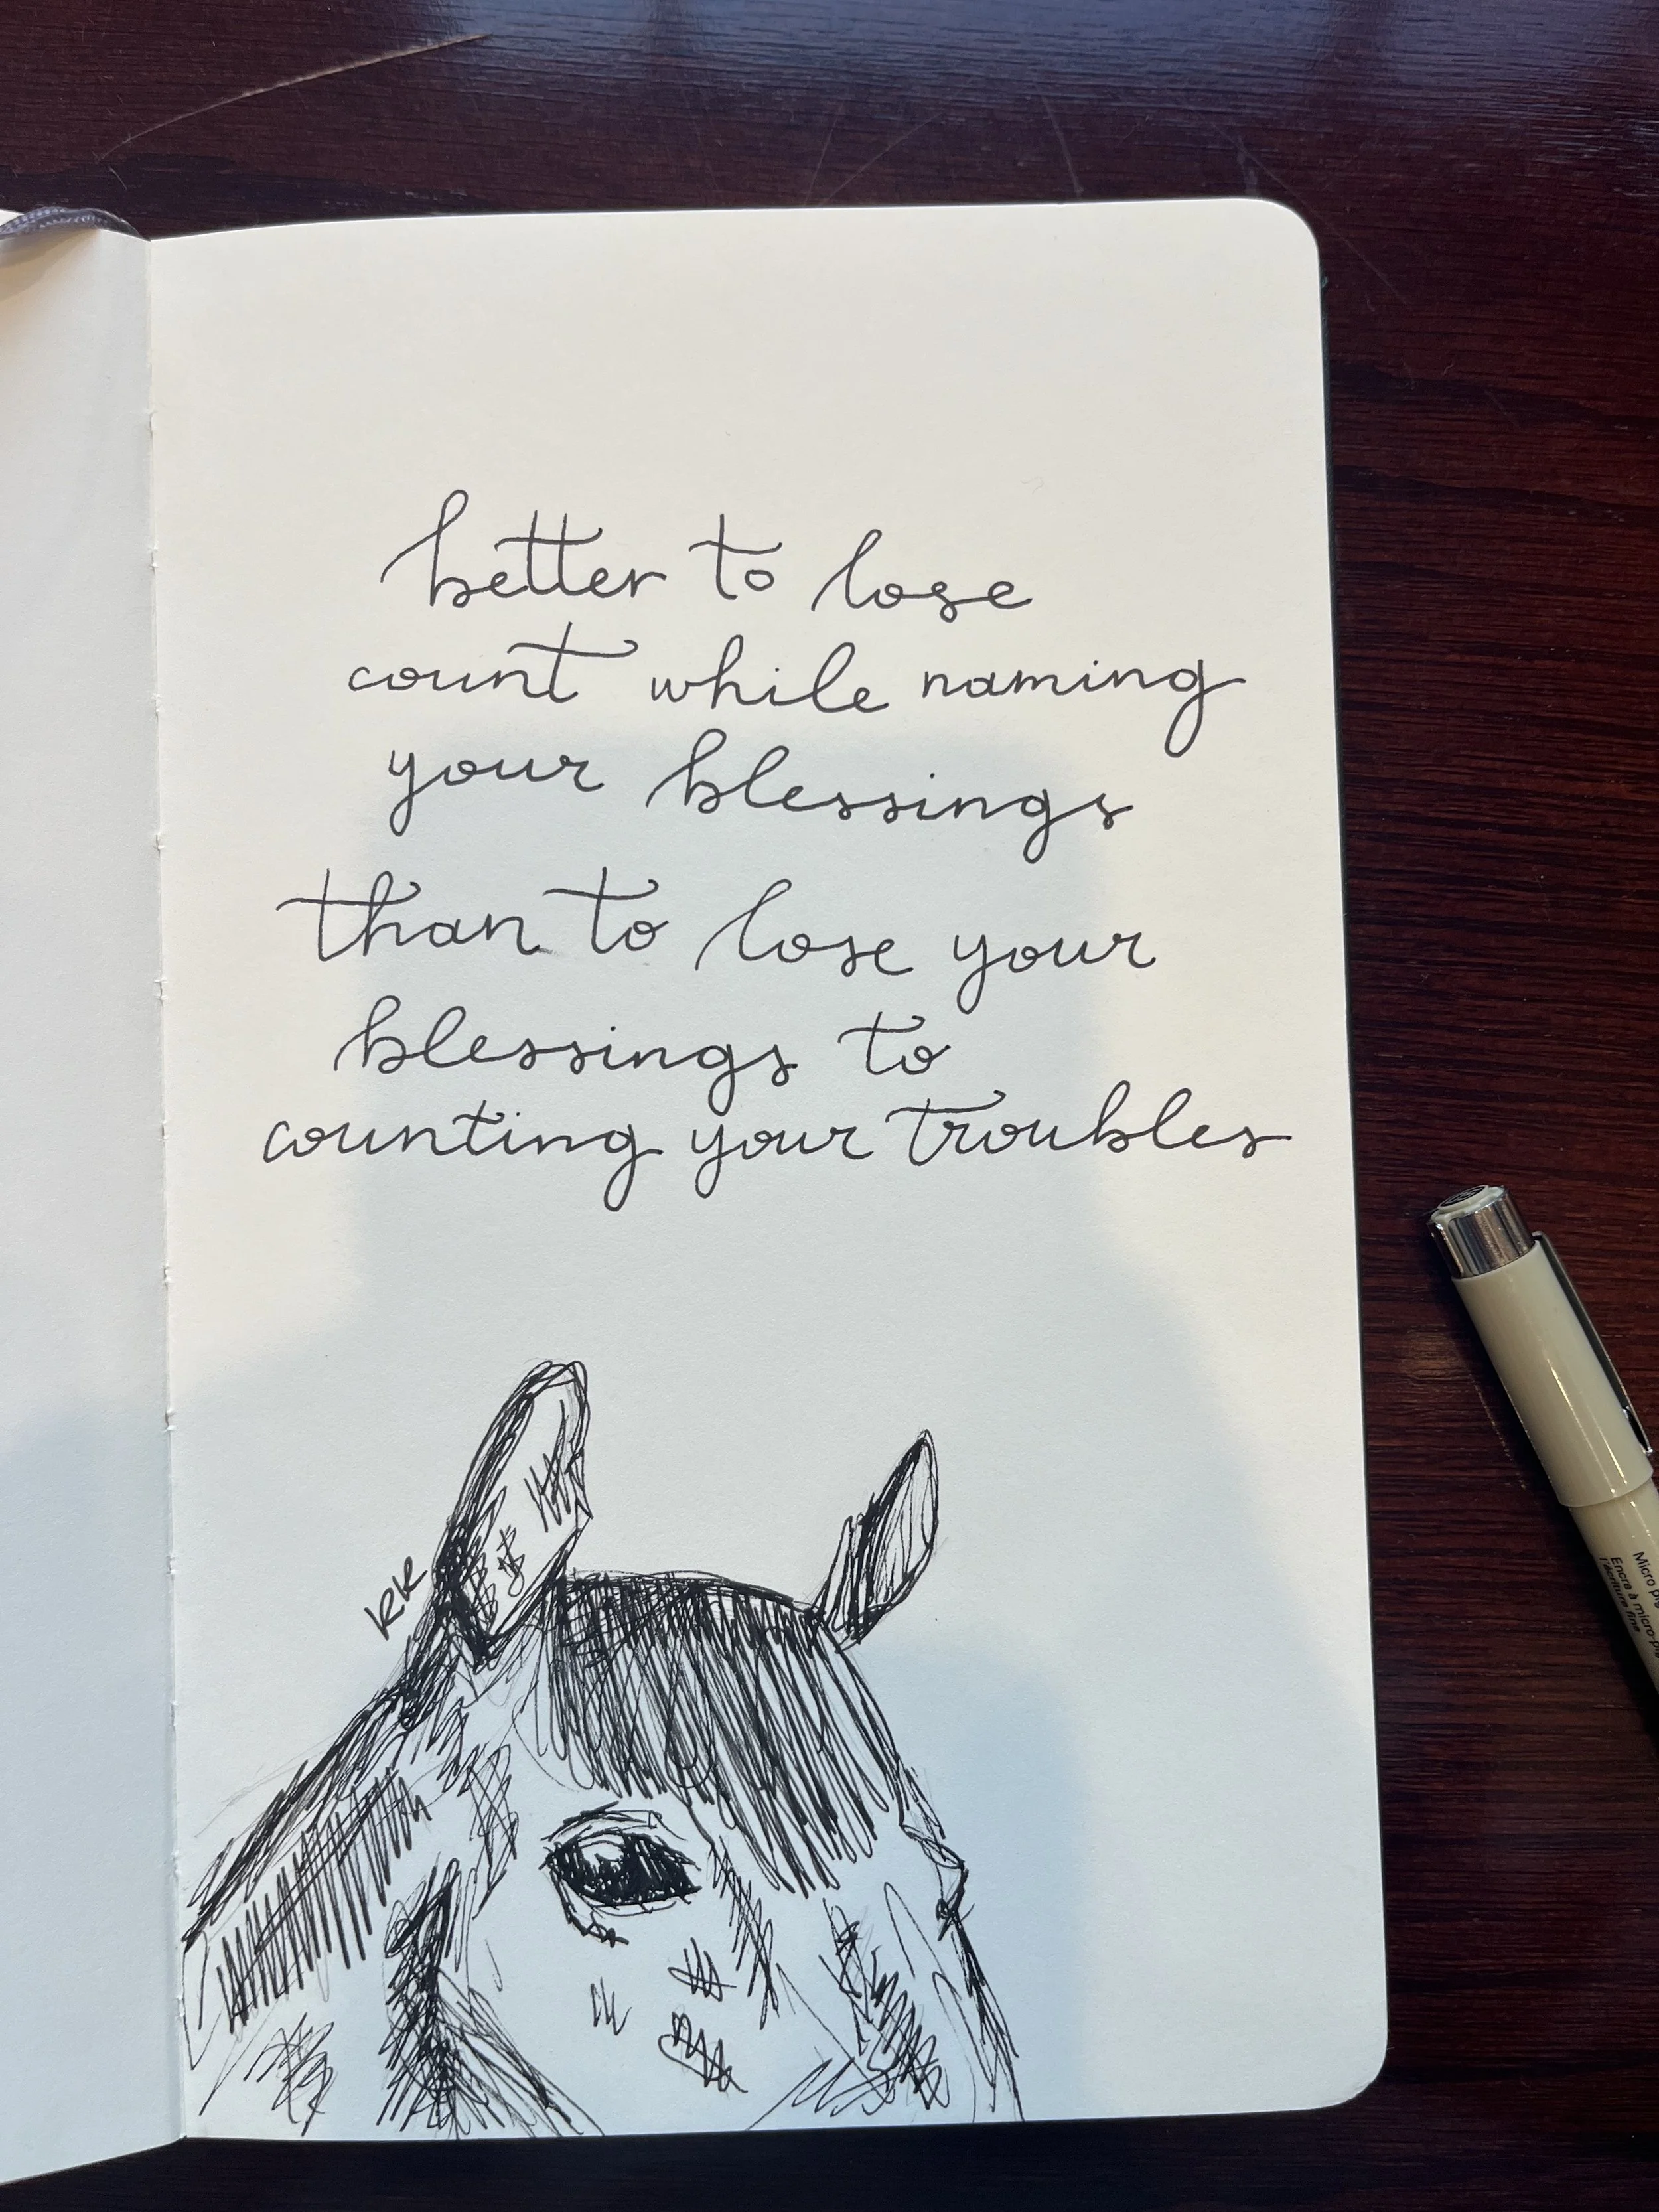 better to lose
count while naming
your blessings
than to lose your
blessings to
counting your troubles
RK
Micro
Encre à micro-pig
l'écriture fine